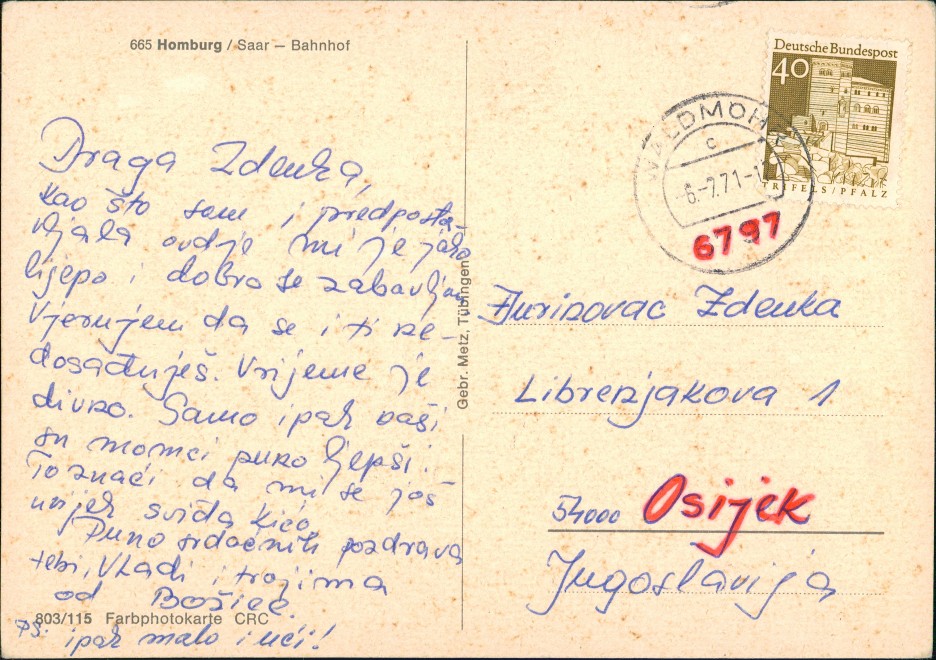 665 Homburg / Saar – Bahnhof
Draga Zdenka,
kao što sam i predposta-
vljala ovdje mi je jako
lijepo i dobro se zabavljam
Vjerujem da se i ti ne-
dosađuješ. Vrijeme je
divno. Samo ipak naši
su momci puno ljepši.
To znači da mi se još
uvijek sviđa Kićo
Puno srdačnih pozdrava
tebi, Vladi i tvojima
od Božice.
803/115 Farbphotokarte CRC
PS. ipak malo i uči!
Gebr. Metz, Tübingen
Deutsche Bundespost
40
TRIFELS/PFALZ
WALDMOHR
c
-6.-7.71-1
6797
Zdenka
1
54000 Osijek
Jugoslavija